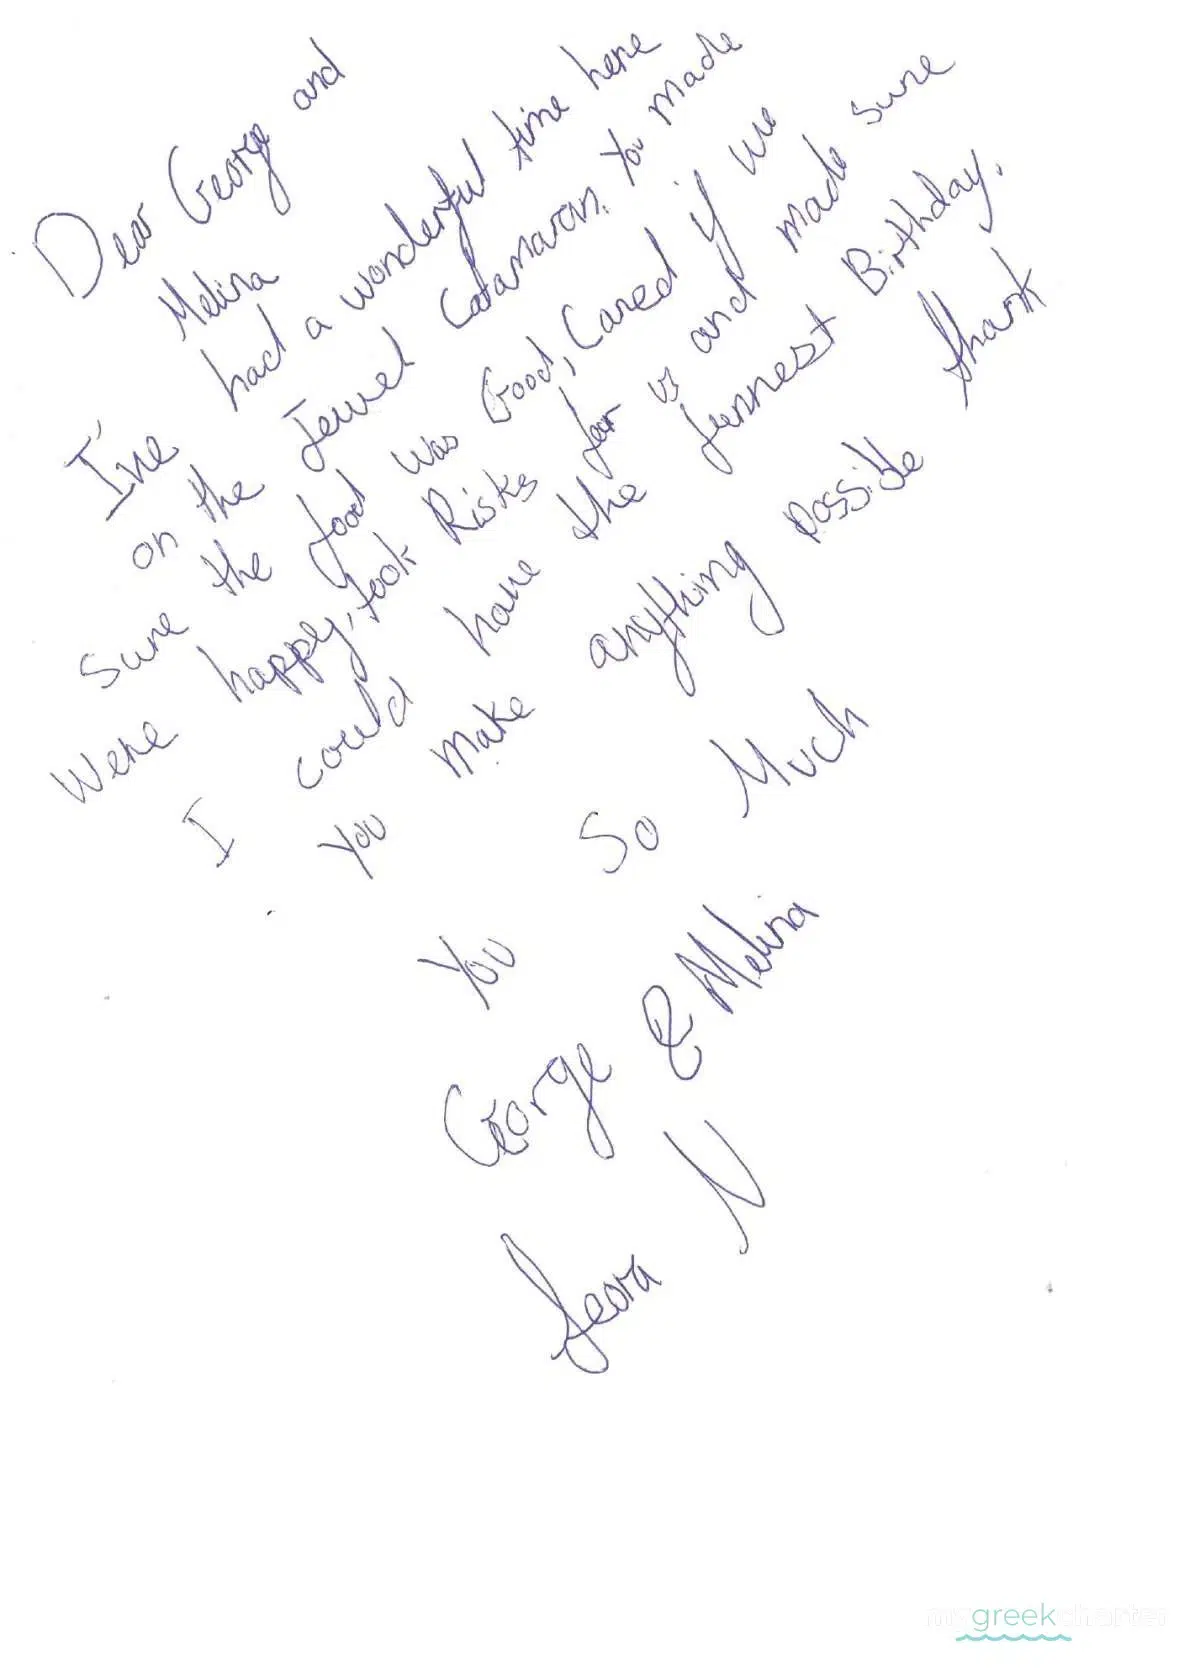 Dear George and
Melina
I've had a wonderful time here
on the Jewel Catamaran. You made
sure the food was Good, Cared if we
were happy, took Risks for us and made sure
I could have the funnest Birthday.
You make anything possible thank
You So Much
George & Melina
N
mygreekcharter